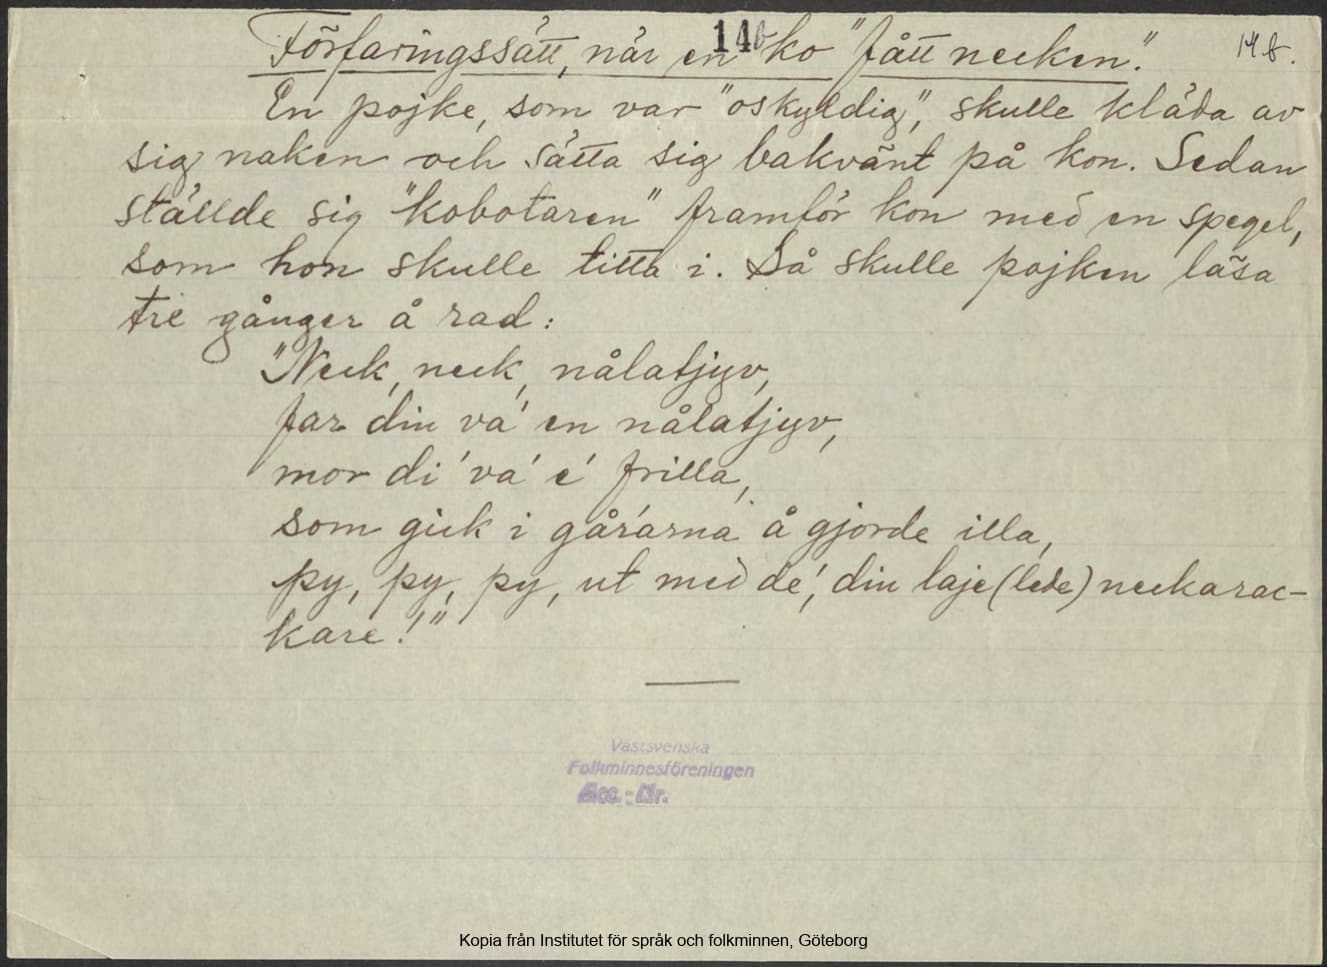 146 14 b.
Förfaringssätt, när en ko "fått necken".
En pojke, som var "oskyldig", skulle kläda av
sig naken och sätta sig bakvänt på kon. Sedan
ställde sig "kobotaren" framför kon med en spegel,
som hon skulle titta i. Så skulle pojken läsa
tre gånger å rad:
"Neck, neck, nålatjyv,
far din va' en nålatjyv,
mor di' va' e' frilla,
som gick i går'arna å gjorde illa,
py, py, py, ut med de', din laje (lede) neckarac-
kare!"
Västsvenska
Folkminnesföreningen
Acc.-Nr.
Kopia från Institutet för språk och folkminnen, Göteborg